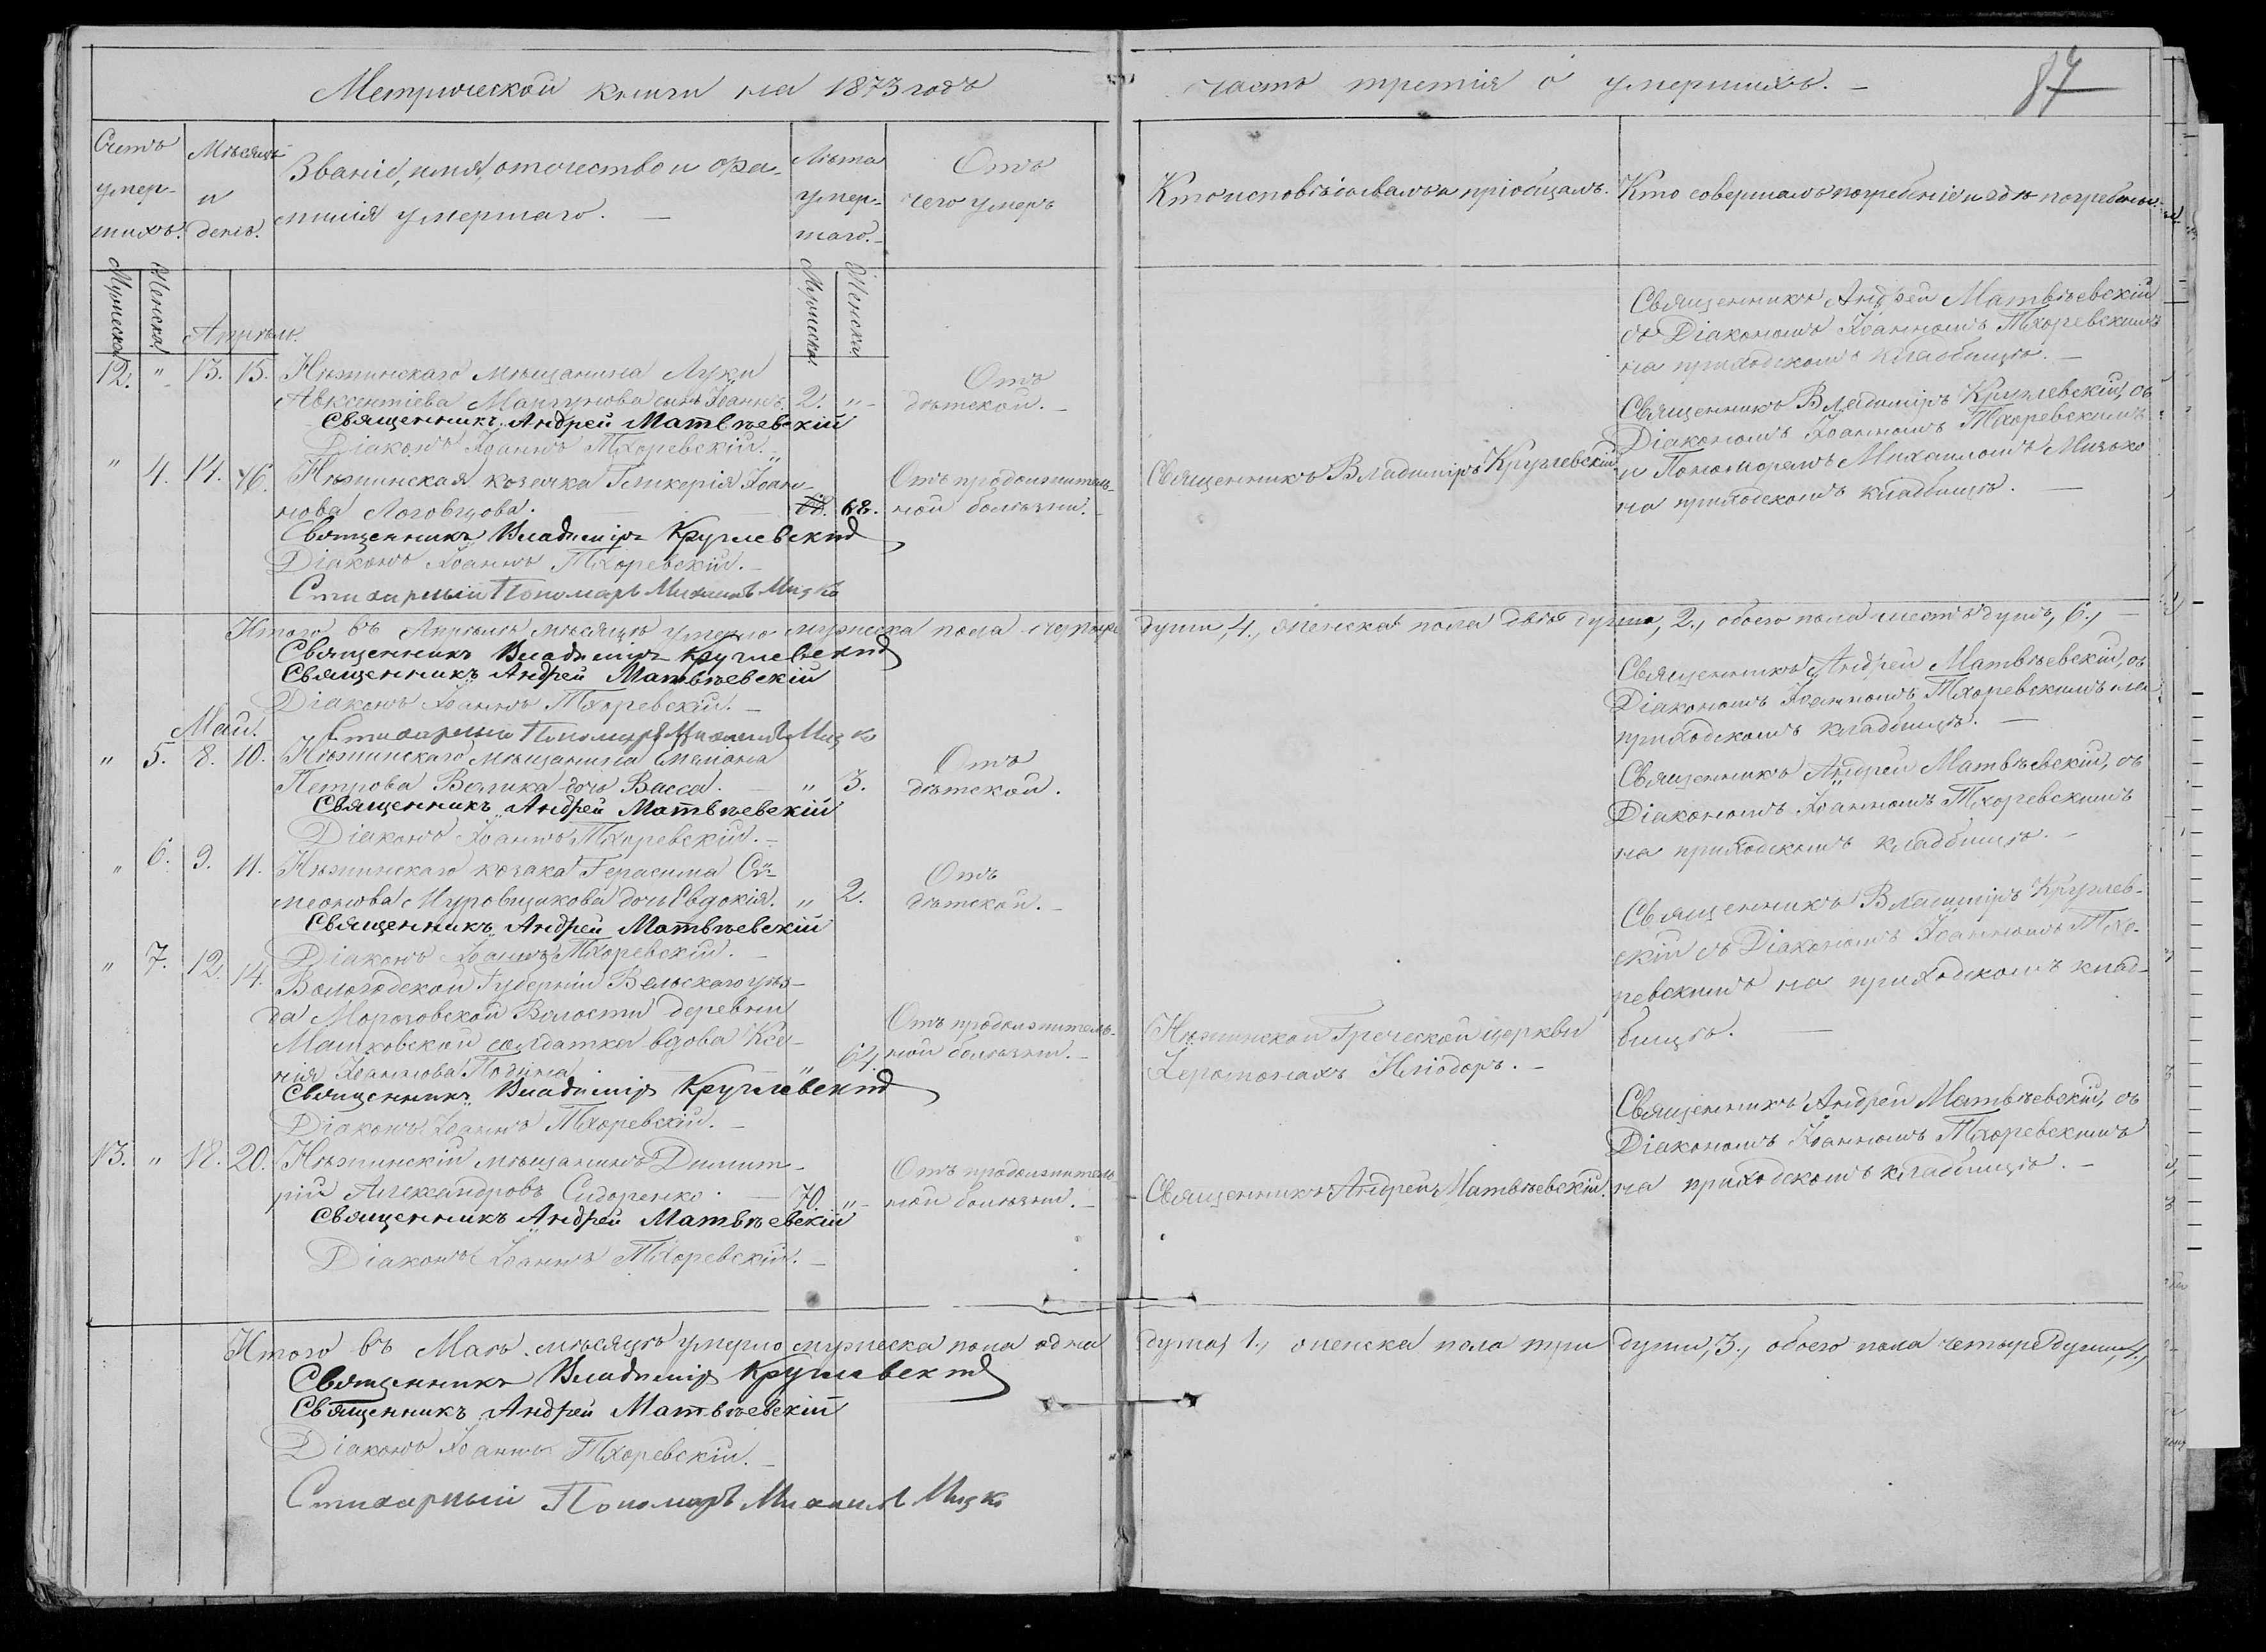 Метрической книги на 1873 годъ
часть третія о умершихъ.
87
Счетъ умер-шихъ.
Мѣсяцъ и день.
Званіе, имя, отчество и фа-
милія умершаго.
Лѣта умер-шаго.
Отъ
чего умеръ
Кто исповѣдывалъ и пріобщалъ.
Кто совершалъ погребеніе и гдѣ погребены.
Мужеска
Женска
Апрѣль.
Мужеска
Женска
12. " 13. 15. Нѣжинскаго мѣщанина Луки
Авксентіева Маргунова сынъ Іоаннъ. 2. "
Отъ
дѣтской.
Священникъ Андрей Матвѣевскій
съ Діакономъ Іоанномъ Тхоревскимъ
на приходскомъ кладбищѣ.
Священникъ Андрей Матвѣевскій
Діаконъ Іоаннъ Тхоревскій.
" 4. 14. 16. Нѣжинская козачка Гликерія Іоан-
нова Логовцова. 68.
Отъ продолжитель-
ной болѣзни.
Священникъ Владиміръ Круглевскій
Священникъ Владиміръ Круглевскій, съ
Діакономъ Іоанномъ Тхоревскимъ
и Пономаремъ Михаиломъ Мизько
на приходскомъ кладбищѣ.
Священникъ Владиміръ Круглевскій
Діаконъ Іоаннъ Тхоревскій.
Стихарный Пономарь Михаилъ Мизко
Итого въ Апрѣлѣ мѣсяцѣ умерло мужеска пола четыре души, 4., женска пола двѣ души, 2., обоего пола шесть душъ, 6.,
Священникъ Владиміръ Круглевскій
Священникъ Андрей Матвѣевскій
Діаконъ Іоаннъ Тхоревскій.
Стихарный Пономарь Михаилъ Мизко
Май.
" 5. 8. 10. Нѣжинскаго мѣщанина Симеона
Петрова Валика дочь Васса. " 3.
Отъ
дѣтской.
Священникъ Андрей Матвѣевскій, съ
Діакономъ Іоанномъ Тхоревскимъ на
приходскомъ кладбищѣ.
Священникъ Андрей Матвѣевскій
Діаконъ Іоаннъ Тхоревскій.
" 6. 9. 11. Нѣжинскаго козака Герасима Си-
меонова Муровщикова дочь Евдокія. " 2.
Отъ
дѣтской.
Священникъ Андрей Матвѣевскій, съ
Діакономъ Іоанномъ Тхоревскимъ
на приходскомъ кладбищѣ.
Священникъ Андрей Матвѣевскій
Діаконъ Іоаннъ Тхоревскій.
" 7. 12. 14. Вологодской Губерніи Вельскаго уѣз-
да Морозовской Волости деревни
Машковской солдатка вдова Ксе-
нія Іоаннова " 64
Отъ продолжитель-
ной болѣзни.
Нѣжинской Греческой церкви
Іеромонахъ Иліодоръ.
Священникъ Владиміръ Круглев-
скій съ Діакономъ Іоанномъ Тхо-
ревскимъ на приходскомъ клад-
бищѣ.
Священникъ Владиміръ Круглевскій
Діаконъ Іоаннъ Тхоревскій.
13. " 18. 20. Нѣжинскій мѣщанинъ Димит-
рій Александровъ Сидоренко. 70. "
Отъ продолжитель-
ной болѣзни.
Священникъ Андрей Матвѣевскій.
Священникъ Андрей Матвѣевскій, съ
Діакономъ Іоанномъ Тхоревскимъ
на приходскомъ кладбищѣ.
Священникъ Андрей Матвѣевскій
Діаконъ Іоаннъ Тхоревскій.
Итого въ Маѣ мѣсяцѣ умерло мужеска пола одна душа, 1., женска пола три души, 3., обоего пола четыре души, 4.,
Священникъ Владиміръ Круглевскій
Священникъ Андрей Матвѣевскій
Діаконъ Іоаннъ Тхоревскій.
Стихарный Пономарь Михаилъ Мизко